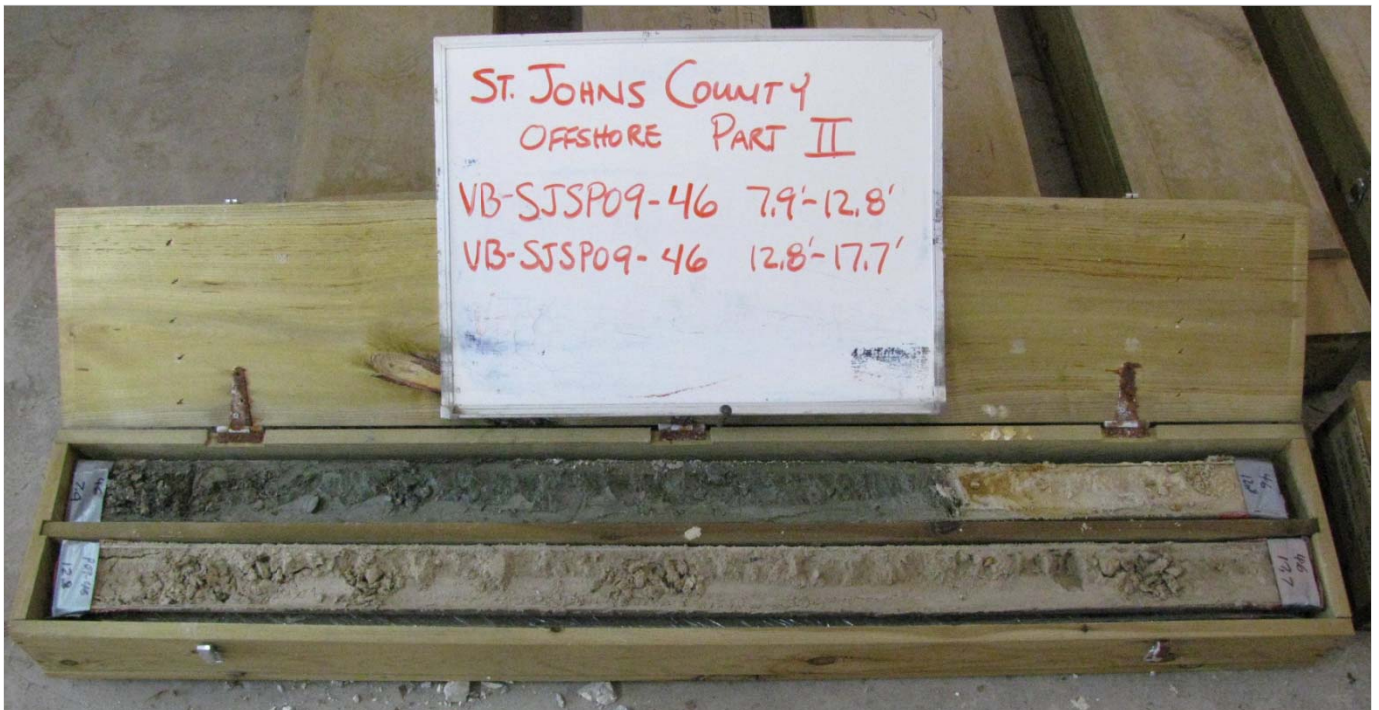 ST. JOHNS COUNTY
OFFSHORE PART II
VB-SJSP09-46 7.9'-12.8'
VB-SJSP09-46 12.8'-17.7'
46
7.9
46
12.8
P09-46
12.8
46
17.7